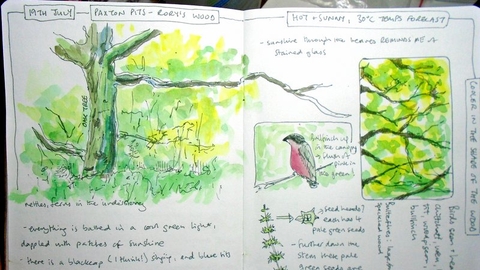 19TH JULY
PAXTON PITS - RORY'S WOOD
OAK TREE
nettles, ferns in the understorey
- everything is bathed in a cool green light,
dappled with patches of sunshine
- there is a blackcap (I think!) singing, and blue tits
HOT + SUNNY, 30°C TEMPS FORECAST
- sunshine through the leaves REMINDS ME of
stained glass
Bullfinch up
in the canopy
a blush of
pink in
the green!
seed heads?
each had 4
pale green seeds
- Further down the
stem these pale
green seeds are
COOLER IN THE SHADE OF THE WOOD
Birds seen
chiffchaff, wren
bullfinch